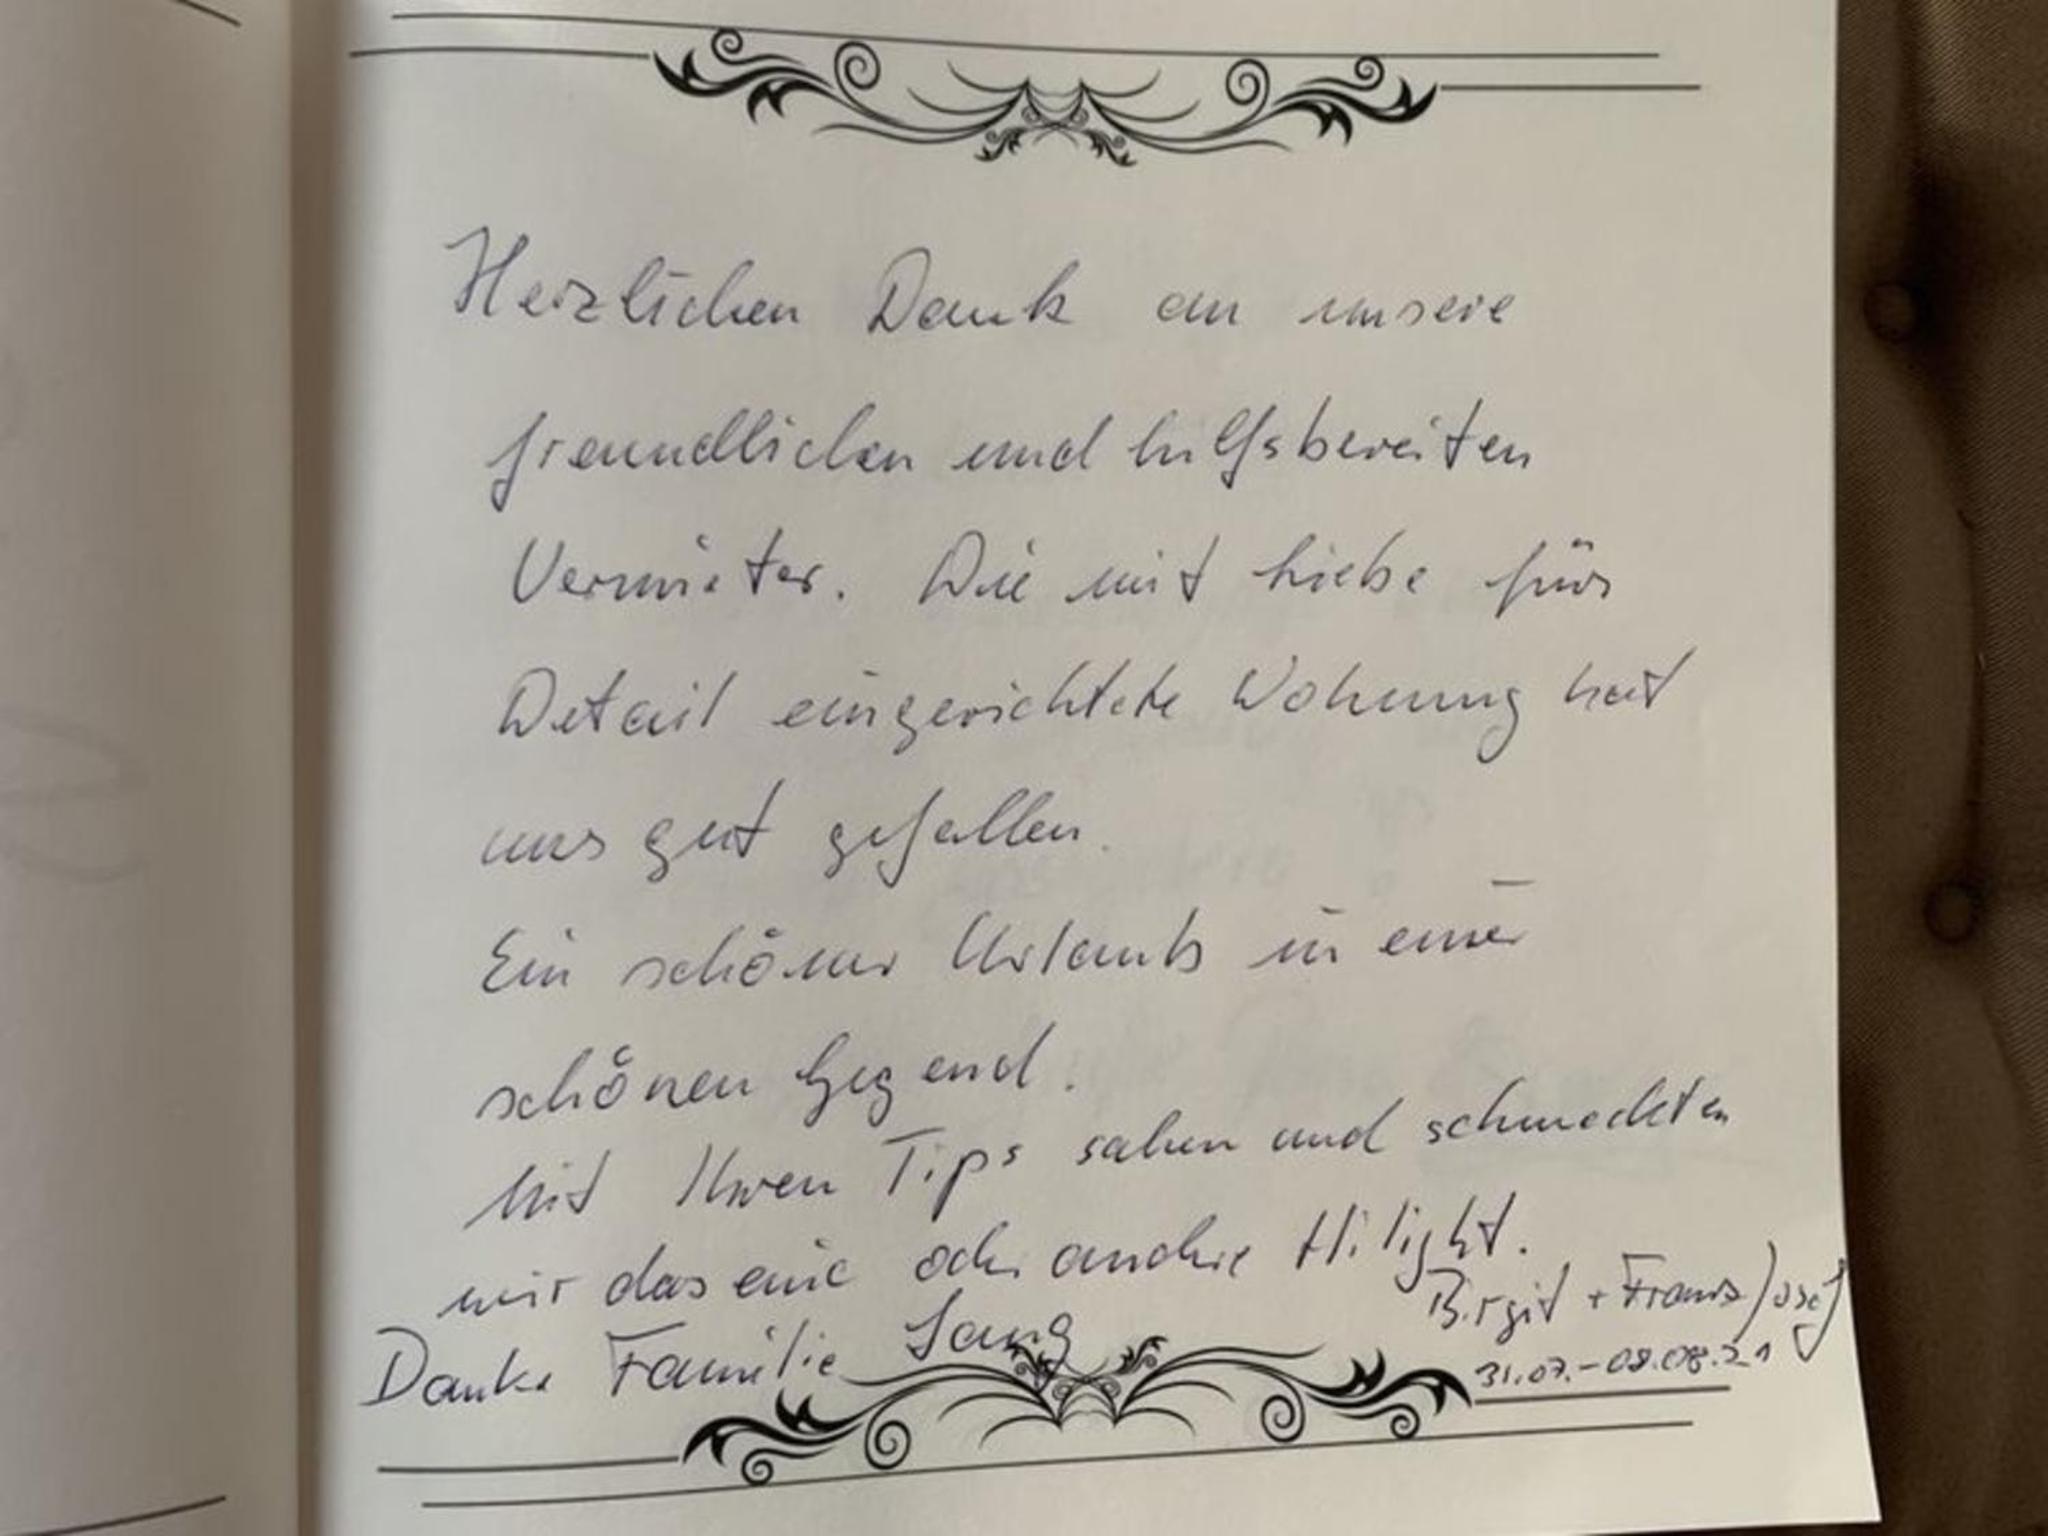 Herzlichen Dank an unsere
freundlichen und hilfsbereiten
Vermieter. Die mit Liebe fürs
Detail eingerichtete Wohnung hat
uns gut gefallen.
Ein schöner Urlaub in einer
schönen Gegend.
Mit Ihren Tips sahen und schmeckten
wir das eine oder andere Hilight.
Birgit + Franz Josef
Danke Familie
31.07.-08.08.21